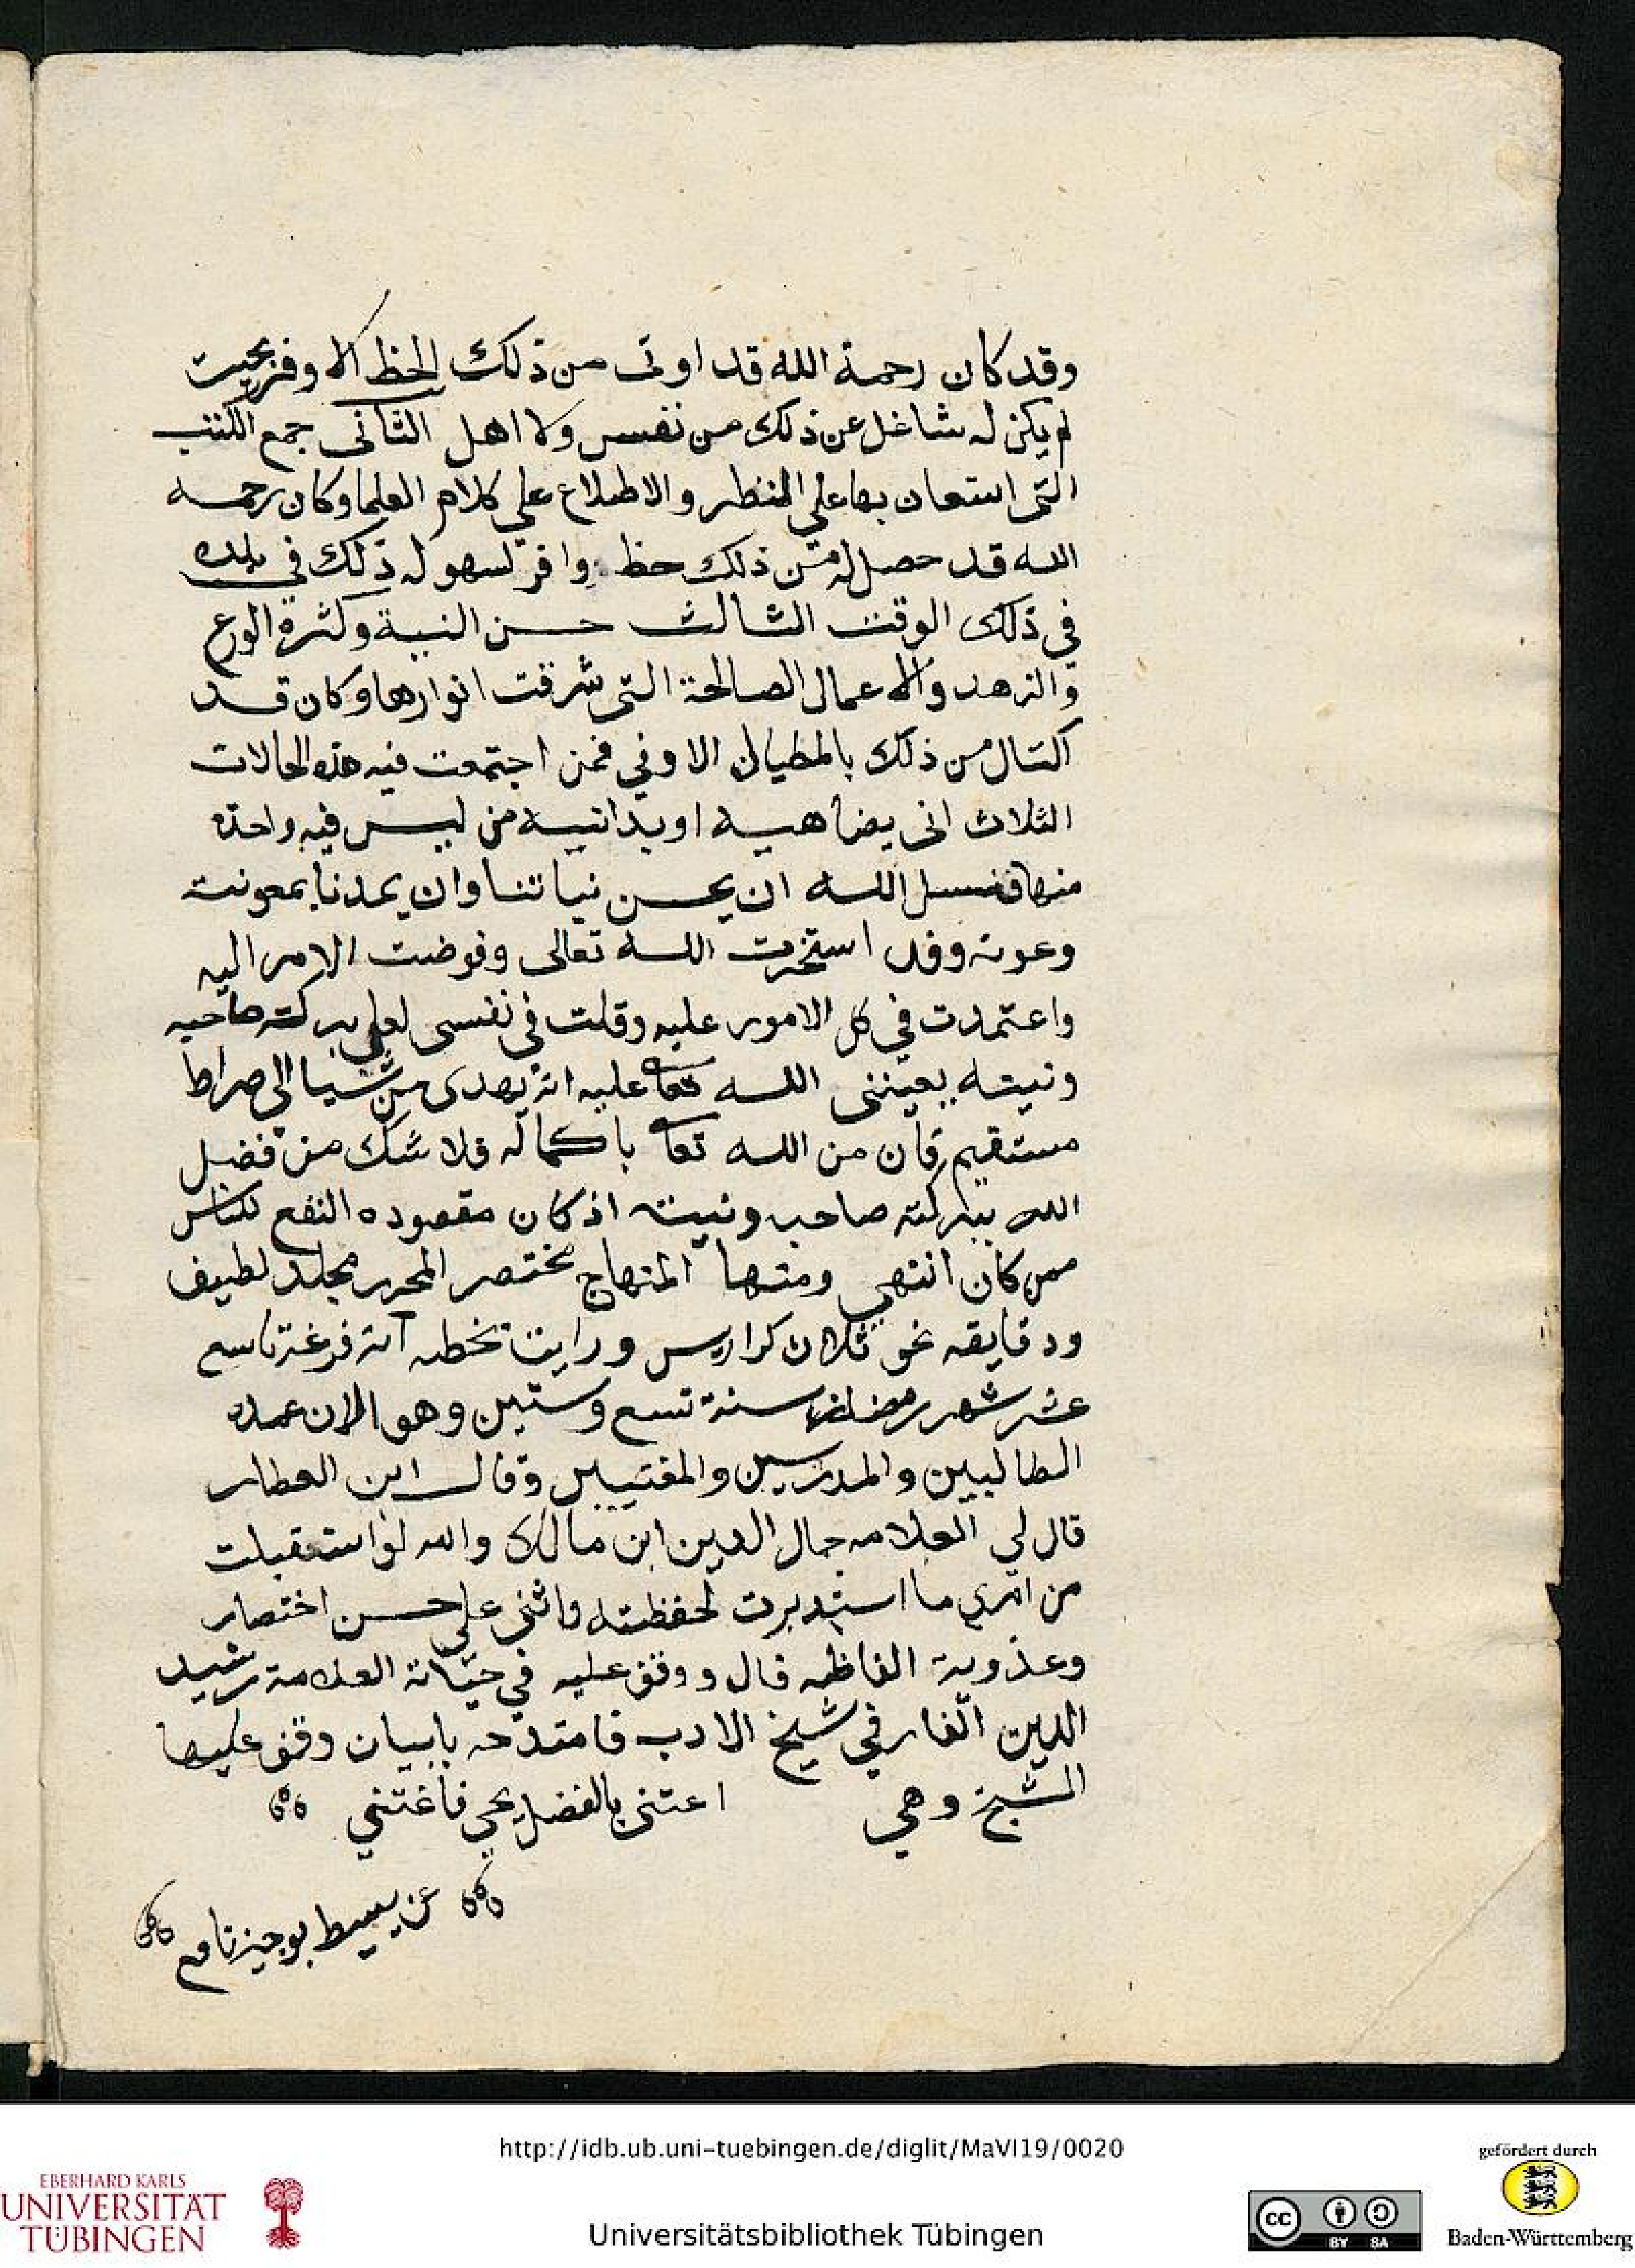 وقد كان رحمة الله قد اوتى من ذلك الحظ الاوفر بحيث
لم يكن له شاغل عن ذلك من نفس ولا اهل الثانى جمع الكتب
التى استعان بها علي النظر والاطلاع علي كلام العلما وكان رحمه
الله قد حصل له من ذلك حظ وافر لسهوله ذلك في بلده
في ذلك الوقت الثالث حسن النية وكثرة الورع
والزهد والاعمال الصالحة التى شرقت انوارها وكان قد
اكتال من ذلك بالمكيال الاوفي فمن اجتمعت فيه هذه الحالات
الثلاث انى يضاهيه او يدانيه من ليس فيه واحدة
منها فنسل الله ان يحسن نياتنا وان يمدنا بمعونته
وعونه وقد استخرت الله تعالى وفوضت الامر اليه
واعتمدت في كل الامور عليه وقلت في نفسى لعل ببركته صاحبه
ونيته يعيننى الله تعا عليه انه يهدى من يشا الي صراط
مستقيم فان من الله تعا باكماله فلا شك من فضل
الله ببركته صاحبه ونيته اذ كان مقصوده النفع للناس
ممن كان انتهي ومنها المنهاج مختصر المحرر مجلد لطيف
ودقايقه نحو ثلاث كراريس ورايت بخطه انه فرغه تاسع
عشر شهر رمضان سنة تسع وستين وهو الان عمدة
الطالبين والمدرسين والمفتيين وقال ابن العطار
قال لي العلامه جمال الدين ابن مالك والله لو استقبلت
من امري ما استدبرت لحفظته واثني علي حسن اختصار
وعذوبة الفاظه قال ووقف عليه في حياته العلامة رشيد
الدين الفارقي شيخ الادب فامتدحه بابيان وقف عليها
الشيخ وهي اعتنى بالفضل يحي فاغتني
عن بسيط بوجيز نافع
http://idb.ub.uni-tuebingen.de/diglit/MaVI19/0020
gefördert durch
EBERHARD KARLS
UNIVERSITÄT
TÜBINGEN
Universitätsbibliothek Tübingen
cc BY SA
Baden-Württemberg